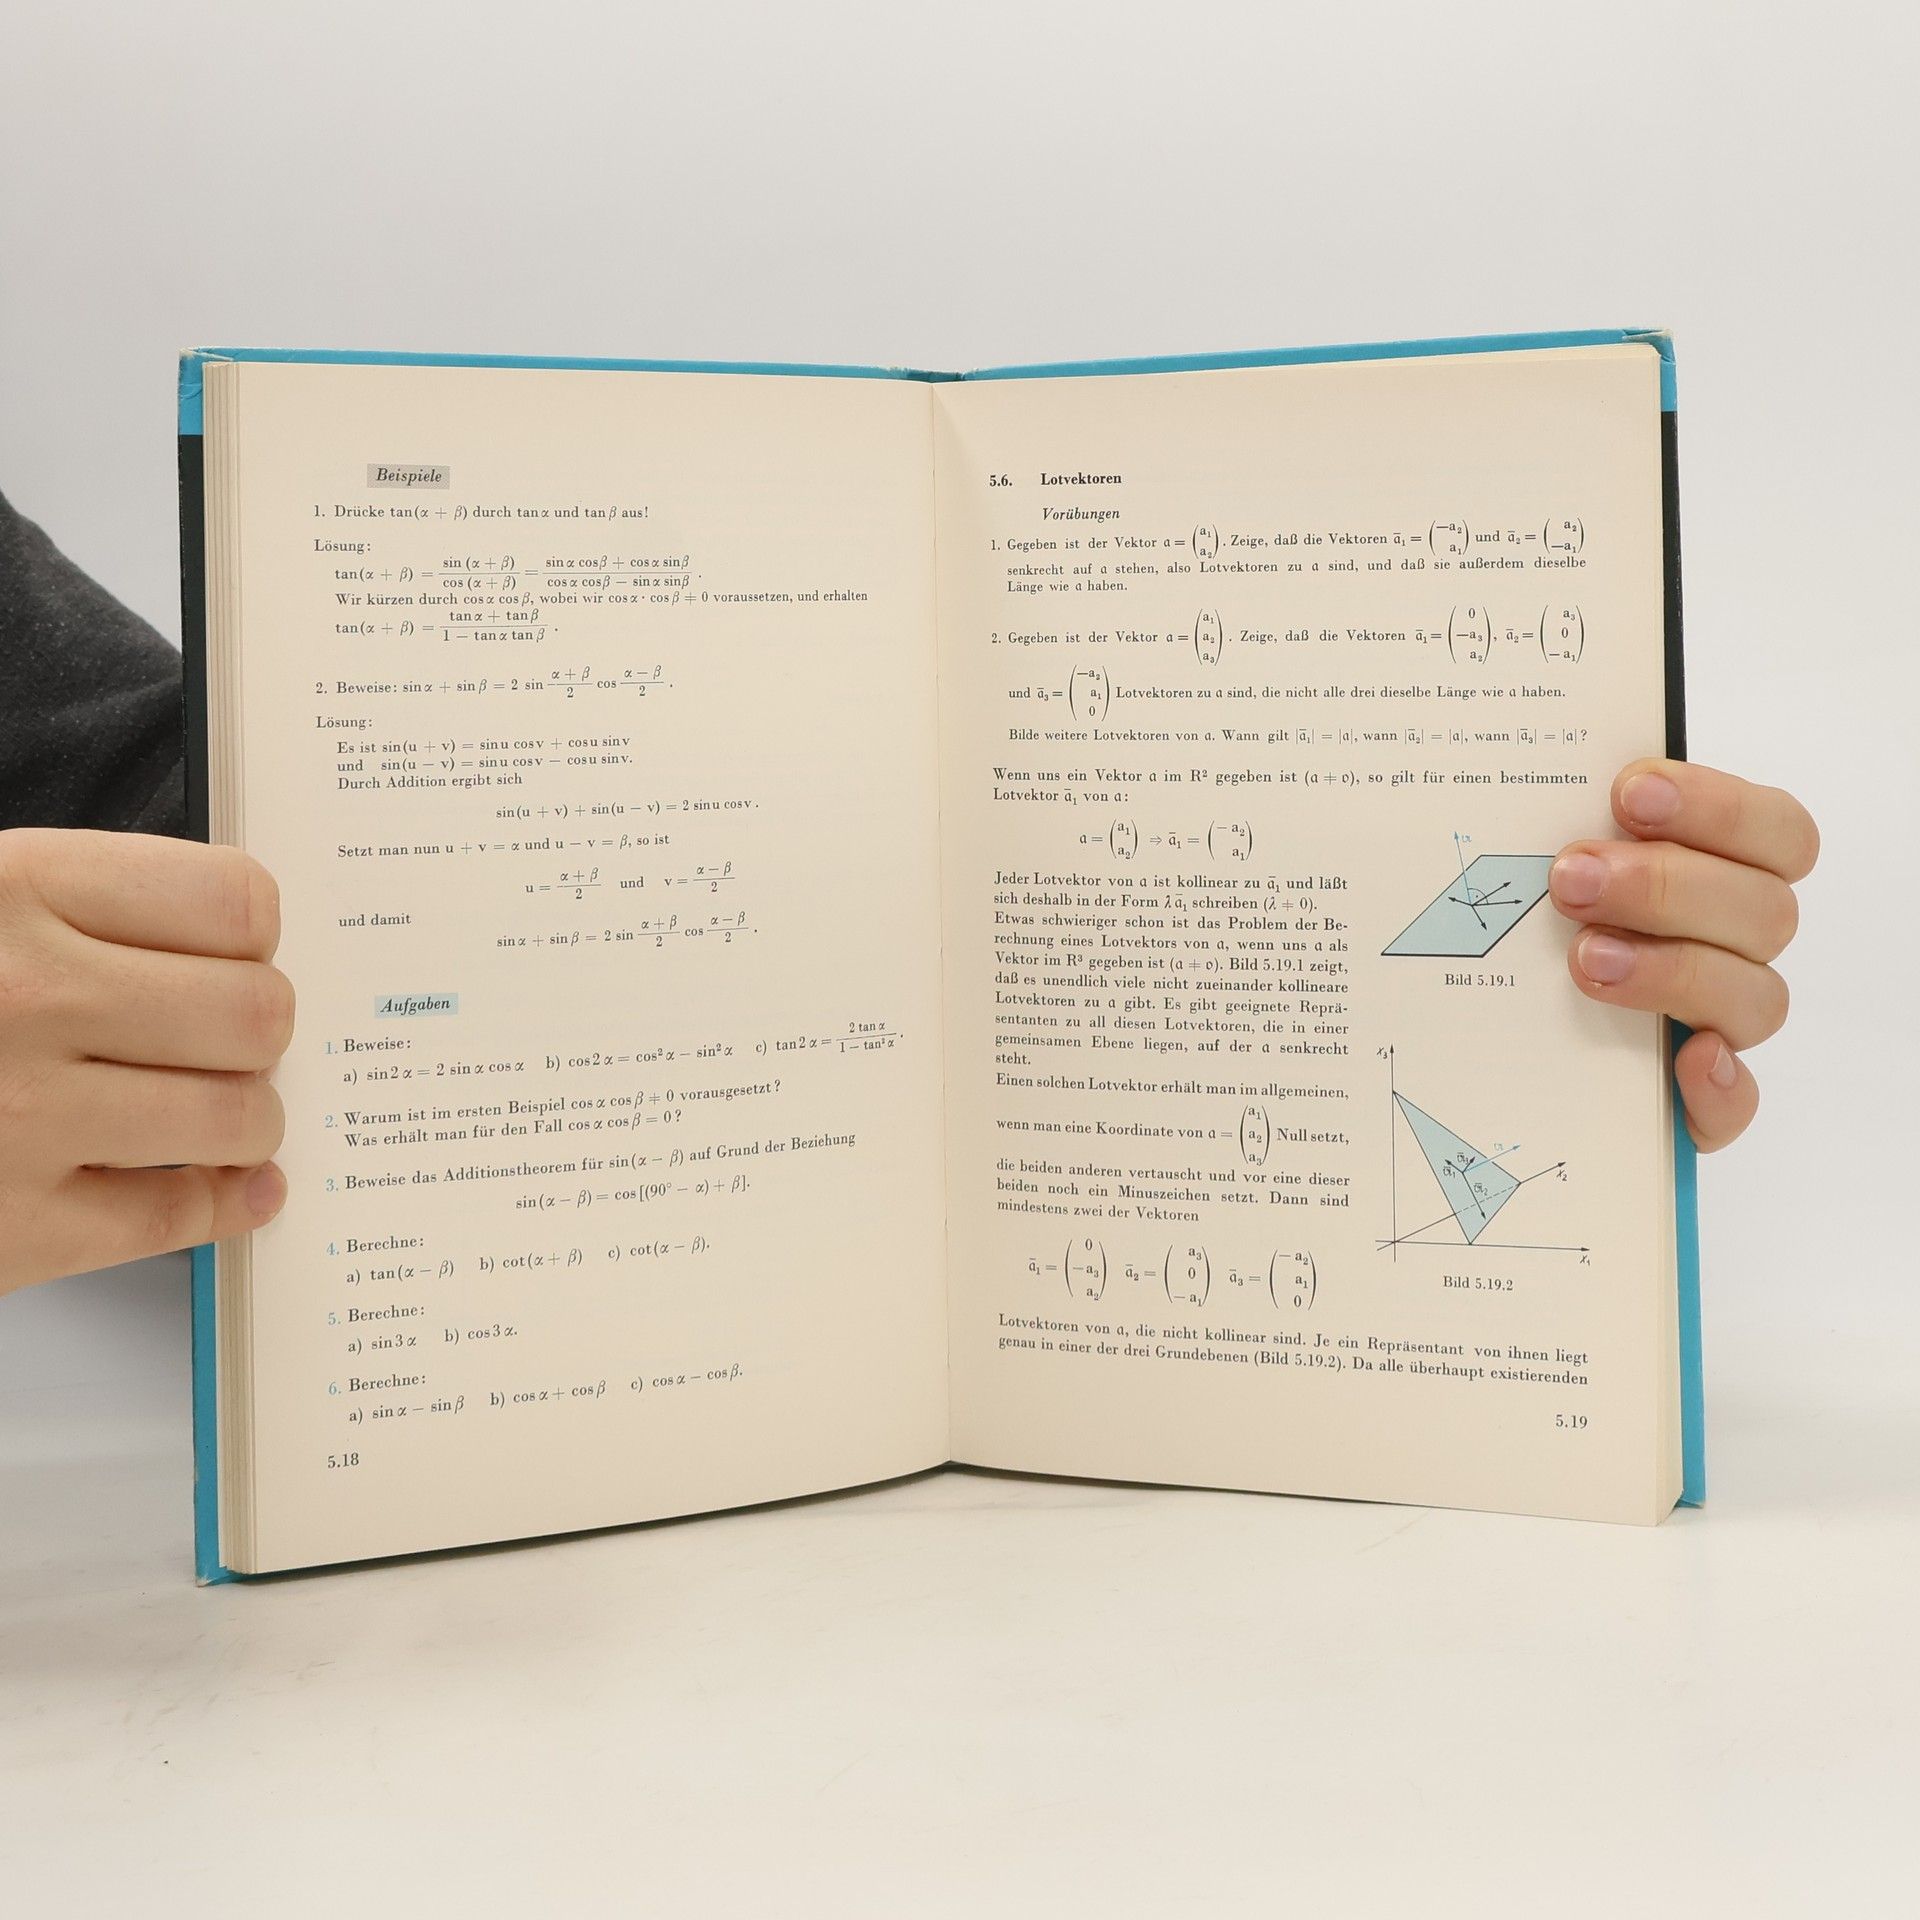 Beispiele
1. Drücke tan(α + β) durch tan α und tan β aus!
Lösung:
tan(α + β) = sin (α + β) / cos (α + β) = (sin α cos β + cos α sin β) / (cos α cos β − sin α sin β) .
Wir kürzen durch cos α cos β, wobei wir cos α · cos β ≠ 0 voraussetzen, und erhalten
tan(α + β) = (tan α + tan β) / (1 − tan α tan β) .
2. Beweise: sin α + sin β = 2 sin (α + β)/2 cos (α − β)/2 .
Lösung:
Es ist sin(u + v) = sin u cos v + cos u sin v
und sin(u − v) = sin u cos v − cos u sin v.
Durch Addition ergibt sich
sin(u + v) + sin(u − v) = 2 sin u cos v .
Setzt man nun u + v = α und u − v = β, so ist
u = (α + β)/2 und v = (α − β)/2
und damit
sin α + sin β = 2 sin (α + β)/2 cos (α − β)/2 .
Aufgaben
1. Beweise:
a) sin 2 α = 2 sin α cos α b) cos 2 α = cos² α − sin² α c) tan 2 α = 2 tan α / (1 − tan² α) .
2. Warum ist im ersten Beispiel cos α cos β ≠ 0 vorausgesetzt?
Was erhält man für den Fall cos α cos β = 0?
3. Beweise das Additionstheorem für sin(α − β) auf Grund der Beziehung
sin(α − β) = cos [(90° − α) + β].
4. Berechne:
a) tan(α − β) b) cot(α + β) c) cot(α − β).
5. Berechne:
a) sin 3 α b) cos 3 α.
6. Berechne:
a) sin α − sin β b) cos α + cos β c) cos α − cos β.
5.18
5.6. Lotvektoren
Vorübungen
1. Gegeben ist der Vektor 𝔞 = (a₁ a₂). Zeige, daß die Vektoren 𝔞̄₁ = (−a₂ a₁) und 𝔞̄₂ = (a₂ −a₁)
senkrecht auf 𝔞 stehen, also Lotvektoren zu 𝔞 sind, und daß sie außerdem dieselbe
Länge wie 𝔞 haben.
2. Gegeben ist der Vektor 𝔞 = (a₁ a₂ a₃). Zeige, daß die Vektoren 𝔞̄₁ = (0 −a₃ a₂), 𝔞̄₂ = (a₃ 0 −a₁)
und 𝔞̄₃ = (−a₂ a₁ 0) Lotvektoren zu 𝔞 sind, die nicht alle drei dieselbe Länge wie 𝔞 haben.
Bilde weitere Lotvektoren von 𝔞. Wann gilt |𝔞̄₁| = |𝔞|, wann |𝔞̄₂| = |𝔞|, wann |𝔞̄₃| = |𝔞|?
Wenn uns ein Vektor 𝔞 im R² gegeben ist (𝔞 ≠ 𝔬), so gilt für einen bestimmten
Lotvektor 𝔞̄₁ von 𝔞:
𝔞 = (a₁ a₂) ⇒ 𝔞̄₁ = (−a₂ a₁)
Jeder Lotvektor von 𝔞 ist kollinear zu 𝔞̄₁ und läßt
sich deshalb in der Form λ 𝔞̄₁ schreiben (λ ≠ 0).
Etwas schwieriger schon ist das Problem der Be-
rechnung eines Lotvektors von 𝔞, wenn uns 𝔞 als
Vektor im R³ gegeben ist (𝔞 ≠ 𝔬). Bild 5.19.1 zeigt,
daß es unendlich viele nicht zueinander kollineare
Lotvektoren zu 𝔞 gibt. Es gibt geeignete Reprä-
sentanten zu all diesen Lotvektoren, die in einer
gemeinsamen Ebene liegen, auf der 𝔞 senkrecht
steht.
𝔞
Bild 5.19.1
Einen solchen Lotvektor erhält man im allgemeinen,
wenn man eine Koordinate von 𝔞 = (a₁ a₂ a₃) Null setzt,
die beiden anderen vertauscht und vor eine dieser
beiden noch ein Minuszeichen setzt. Dann sind
mindestens zwei der Vektoren
𝔞̄₁ = (0 −a₃ a₂) 𝔞̄₂ = (a₃ 0 −a₁) 𝔞̄₃ = (−a₂ a₁ 0)
x₃
𝔞
𝔞̄₁
𝔞̄₂
x₂
x₁
Bild 5.19.2
Lotvektoren von 𝔞, die nicht kollinear sind. Je ein Repräsentant von ihnen liegt
genau in einer der drei Grundebenen (Bild 5.19.2). Da alle überhaupt existierenden
5.19